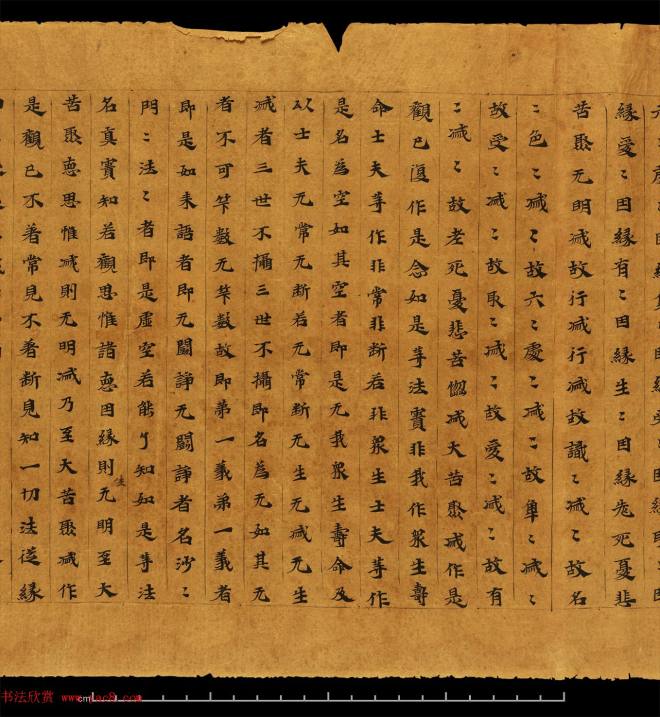 縁愛〻因縁有〻因縁生〻因縁老死憂悲
苦聚无明滅故行滅行滅故識〻滅〻故名
〻色〻滅〻故六〻處〻滅〻故觸〻滅〻
故受〻滅〻故取〻滅〻故愛〻滅〻故有
〻滅〻故老死憂悲苦惱滅大苦聚滅作是
觀已復作是念如是等法實非我作衆生壽
命士夫等作非常非断若非衆生士夫等作
是名為空如其空者即是无我衆生壽命及
以士夫无常无断若无常断无生无滅无生
滅者三世不攝三世不攝即名為无如其无
者不可筭數无筭數故即第一義第一義者
即是如来語者即无闘諍无闘諍者名沙〻
門〻法〻者即是虚空若能了知如是等法
名真實知若觀思惟諸惡因縁則无明生至大
苦聚惡思惟滅則无明滅乃至大苦聚滅作
是觀已不著常見不著断見知一切法従縁
书法欣赏 www.yac8.com
cm